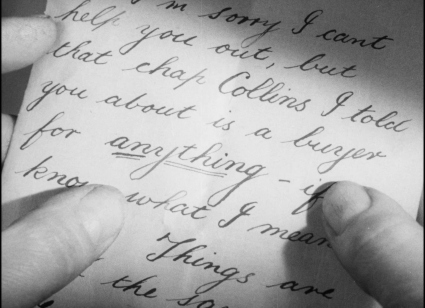 I'm sorry I cant
help you out, but
that chap Collins I told
you about is a buyer
for anything - if
what I mean
Things are
the